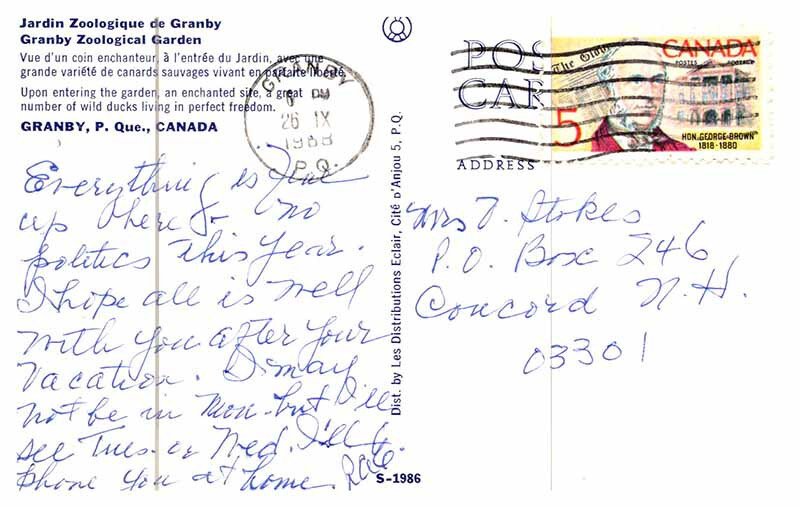 Jardin Zoologique de Granby
Granby Zoological Garden
Vue d'un coin enchanteur, à l'entrée du Jardin, avec une
grande variété de canards sauvages vivant en parfaite liberté.
Upon entering the garden, an enchanted site, a great
number of wild ducks living in perfect freedom.
GRANBY, P. Que., CANADA
GRANBY
PM
26 IX
1968
P.Q.
Everything is fine
up here & no
politics this year.
I hope all is well
with you after your
vacation. I may
not be in Mon. but I'll
see Tues. or Wed. I'll
phone you at home.
Dist. by Les Distributions Eclair, Cité D'Anjou 5, P.Q.
S-1986
POS
CAR
ADDRESS
The Globe
CANADA
POSTES POSTAGE
5
HON. GEORGE BROWN
1818-1880
Mrs T. Stokes
P.O. Box 246
Concord N.H.
03301